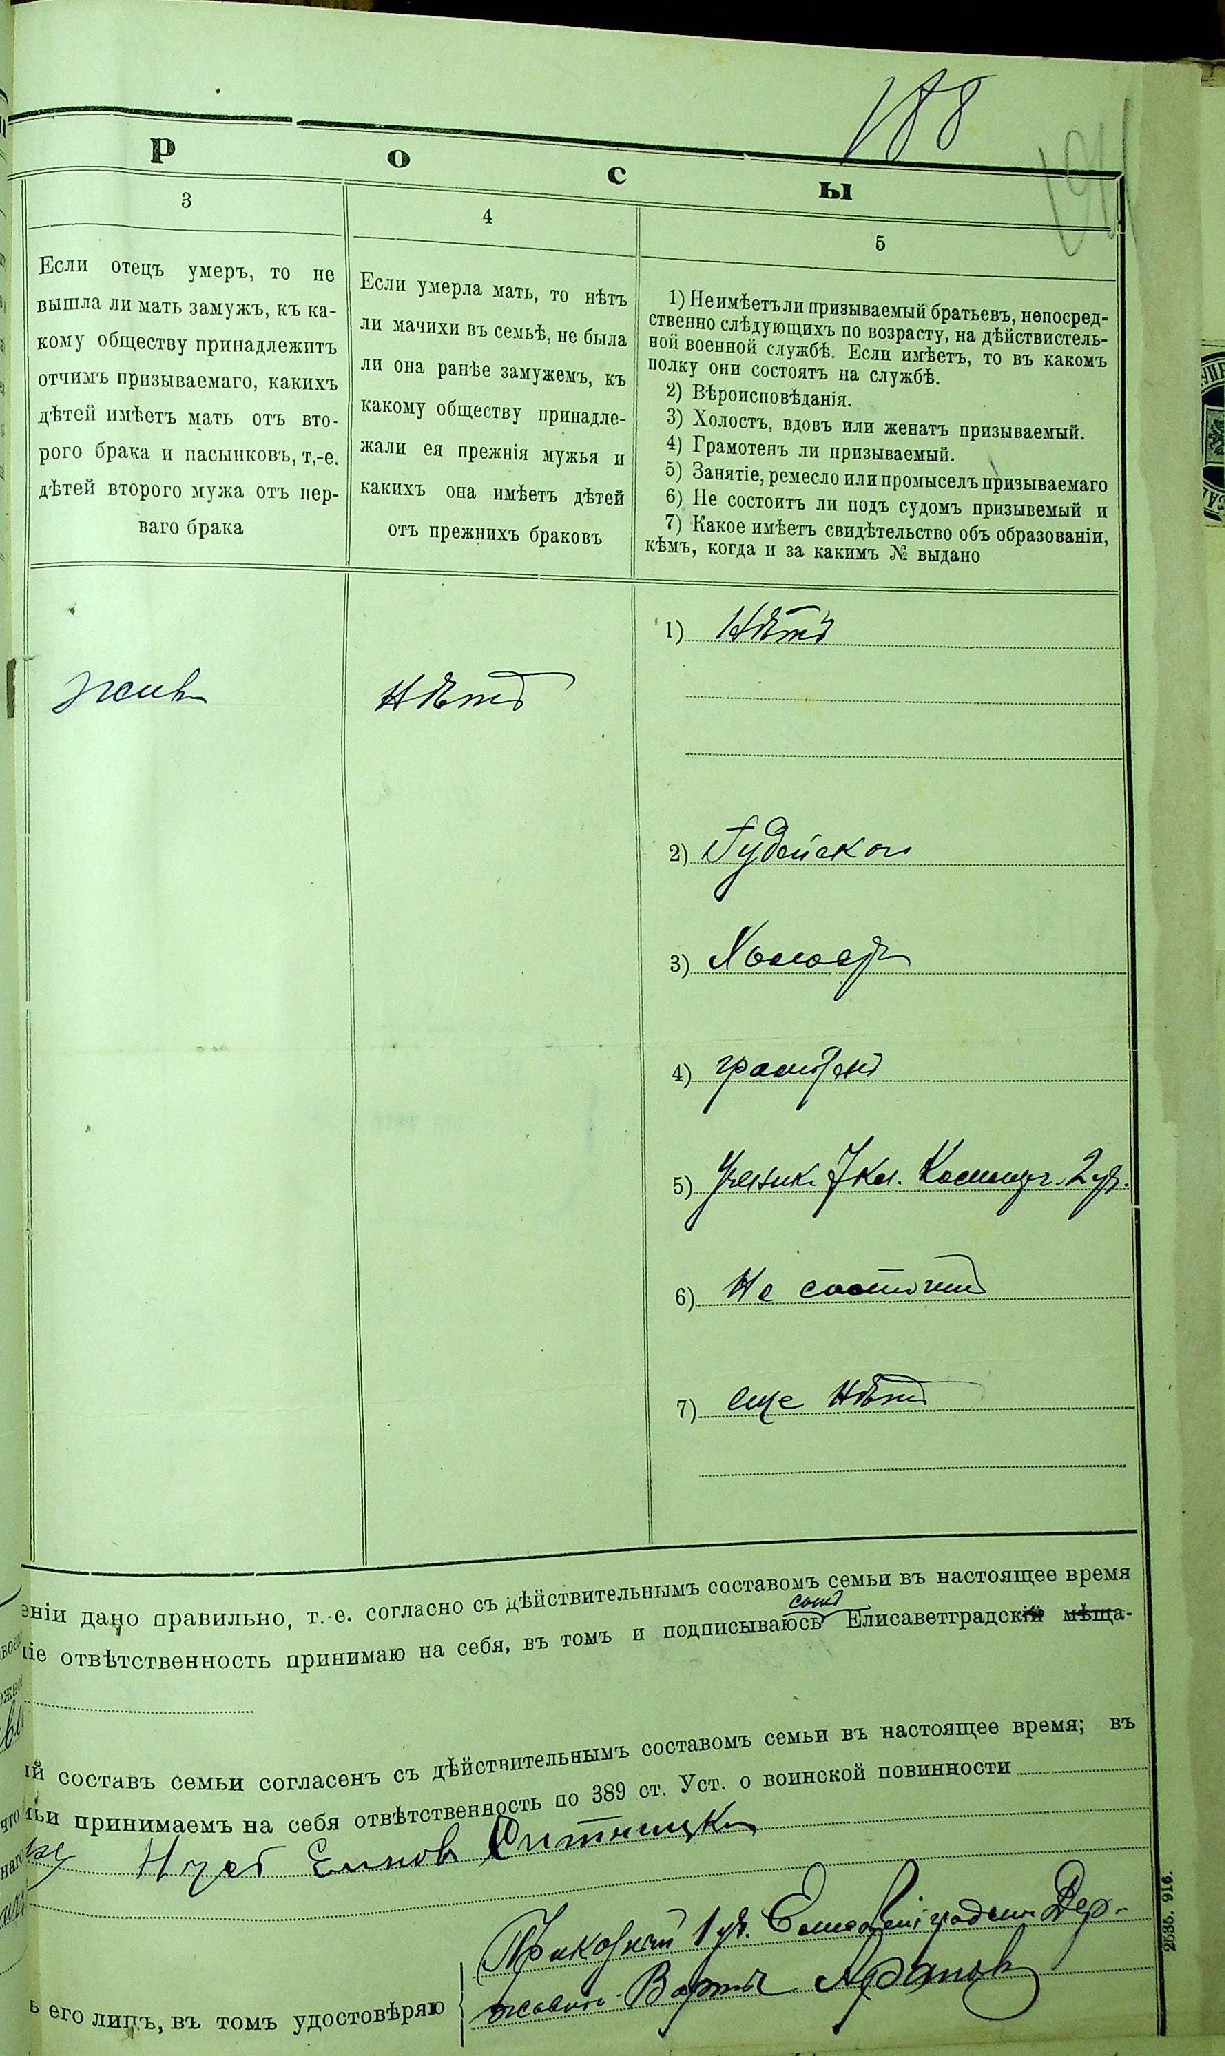 188
191
Р О С Ы
3
Если отецъ умеръ, то не
вышла ли мать замужъ, къ ка-
кому обществу принадлежитъ
отчимъ призываемаго, какихъ
дѣтей имѣетъ мать отъ вто-
рого брака и пасынковъ, т,-е.
дѣтей второго мужа отъ пер-
ваго брака
4
Если умерла мать, то нѣтъ
ли мачихи въ семьѣ, не была
ли она ранѣе замужемъ, къ
какому обществу принадле-
жали ея прежнія мужья и
какихъ она имѣетъ дѣтей
отъ прежнихъ браковъ
5
1) Неимѣетъли призываемый братьевъ, непосред-
ственно слѣдующихъ по возрасту, на дѣйствистель-
ной военной службѣ. Если имѣетъ, то въ какомъ
полку они состоятъ на службѣ.
2) Вѣроисповѣданія.
3) Холостъ, вдовъ или женатъ призываемый.
4) Грамотенъ ли призываемый.
5) Занятіе, ремесло или промыселъ призываемаго
6) Не состоитъ ли подъ судомъ призывемый и
7) Какое имѣетъ свидѣтельство объ образованіи,
кѣмъ, когда и за какимъ № выдано
жив
Нѣтъ
1) Нѣтъ
2) Іудейскаго
3) Холостъ
4) грамотенъ
5) Ученик 7 кл. Коммерч. 2 уч.
6) Не состоитъ
7) еще Нѣтъ
еніи дано правильно, т.-е. согласно съ дѣйствительнымъ составомъ семьи въ настоящее время
іе отвѣтственность принимаю на себя, въ томъ и подписываюсь Елисаветградскій мѣща-
ій составъ семьи согласенъ съ дѣйствительнымъ составомъ семьи въ настоящее время; въ
ьи принимаемъ на себя отвѣтственность по 389 ст. Уст. о воинской повинности
Ситницкій
1 уч. Елисаветградск.
ь его лицъ, въ томъ удостовѣряю
2535. 916.